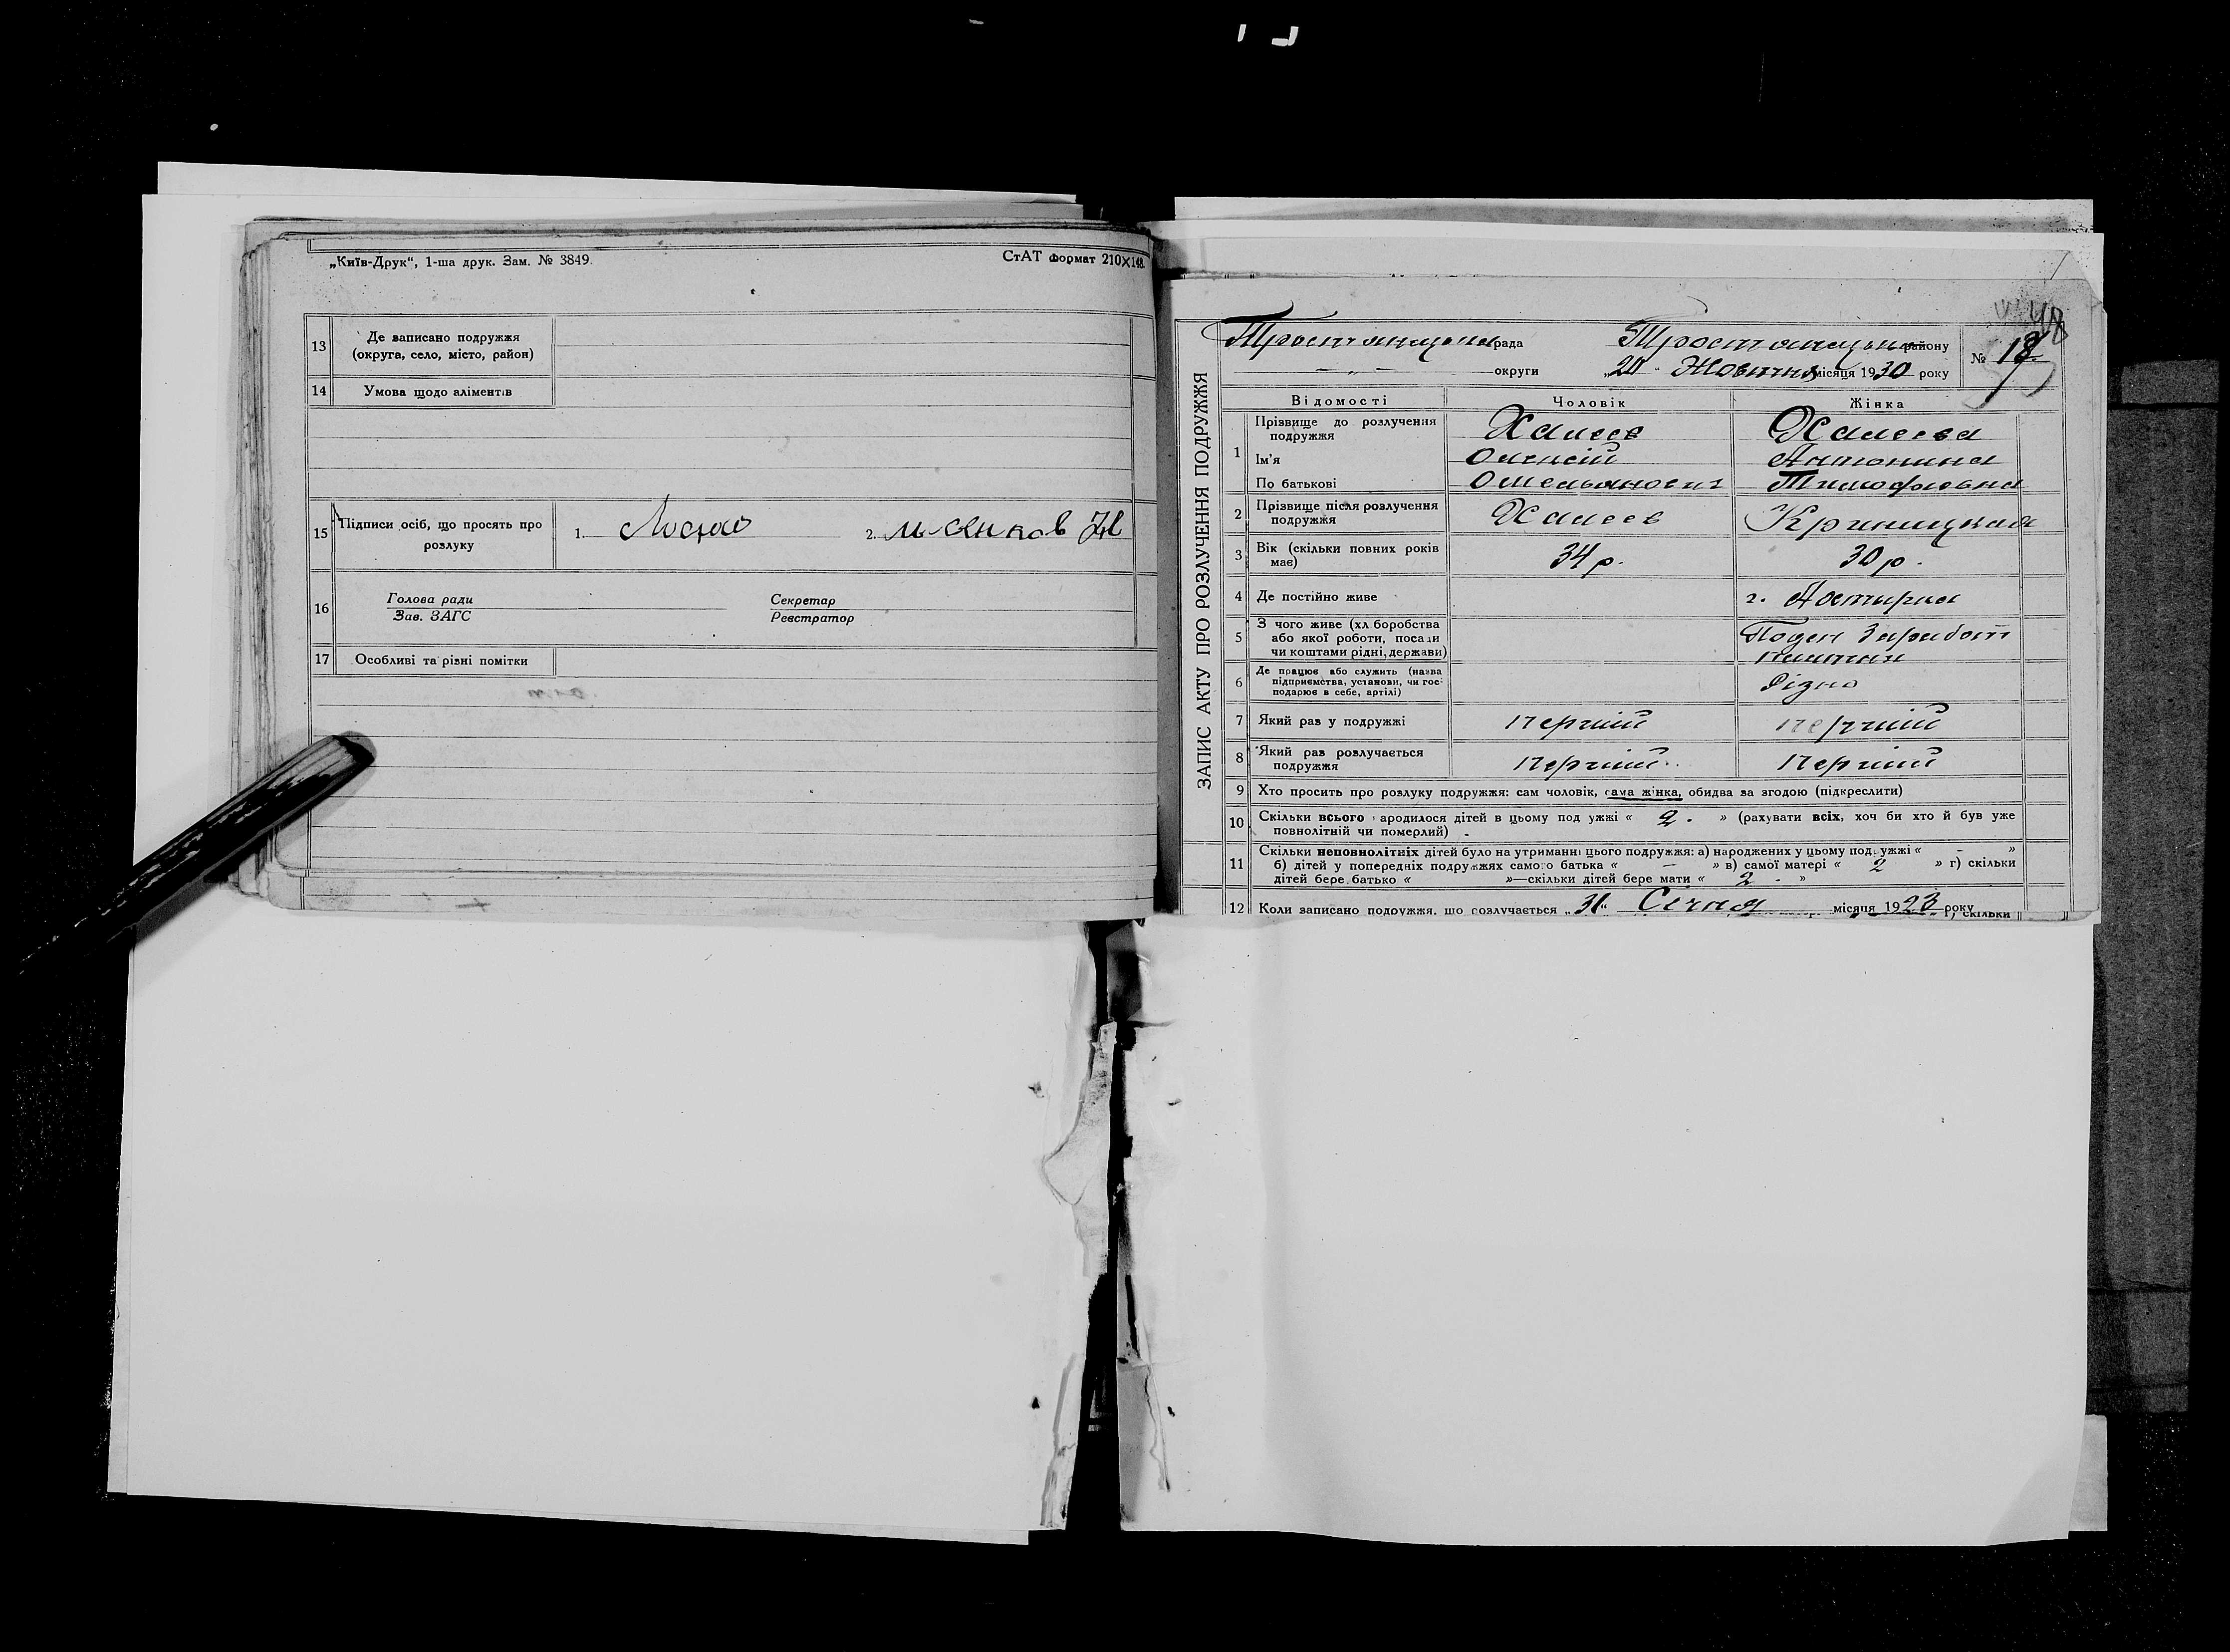 „Київ-Друк“, 1-ша друк. Зам. № 3849. СтАТ формат 210×148.
13 Де записано подружжя
(округа, село, місто, район)
14 Умова щодо аліментів
15 Підписи осіб, що просять про
розлуку 1. 2.
16 Голова ради Секретар
Зав. ЗАГС Реєстратор
17 Особливі та різні помітки
ЗАПИС АКТУ ПРО РОЗЛУЧЕННЯ ПОДРУЖЖЯ
Тростянецька рада Тростянецького району
округи Жовтня місяця 1930 року № 18
Відомості Чоловік Жінка
1 Прізвище до розлучення
подружжя Халеев Халеева
Ім'я Олексій Антонина
По батькові Омельянович Тимофеевна
2 Прізвище після розлучення
подружжя Халеев Криницкая
3 Вік (скільки повних років
має) 34 р. 30 р.
4 Де постійно живе г. Ахтирка
5 З чого живе (хл боробства
або якої роботи, посади
чи коштами рідні, держави) Поден Заработ
6 Де працює або служить (назва
підприємства, установи, чи гос-
подарює в себе, артілі) Різно
7 Який раз у подружжі перший перший
8 Який раз розлучається
подружжя перший перший
9 Хто просить про розлуку подружжя: сам чоловік, сама жінка, обидва за згодою (підкреслити)
10 Скільки всього ародилося дітей в цьому под ужжі « 2 . » (рахувати всіх, хоч би хто й був уже
повнолітній чи померлий)
11 Скільки неповнолітніх дітей було на утриманні цього подружжя: а) народжених у цьому под ужжі « - »
б) дітей у попередніх подружжях самого батька « — » в) самої матері « 2 » г) скільки
дітей бере батько « »—скільки дітей бере мати « 2 - »
12 Коли записано подружжя, що розлучається „31“ Січня місяця 1923 року
г) скільки